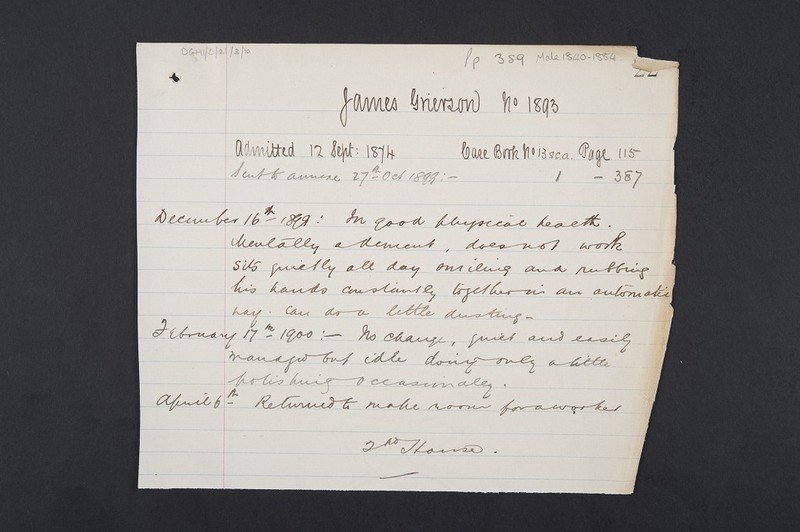 DGH1/
Pp 389 Male 1890-1884
22
James Grierson No 1893
Admitted 12 Sept: 1874 Case Book No 13 Page 115
Sent to annexe 27th Oct 1899:- 1 - 387
December 16th 1899: In good physical health.
Mentally a dement, does not work
sits quietly all day smiling and rubbing
his hands constantly together in an automatic
way. Can do a little dusting-
February 17th 1900:- No change, quiet and easily
managed but idle doing only a little
polishing occasionally.
April 6th Returned to make room for a worker
2nd House.